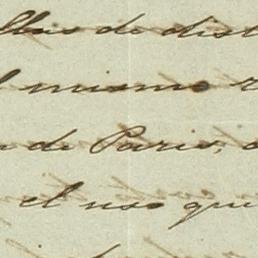 de dist
el mismo
de Paris,
el uso que